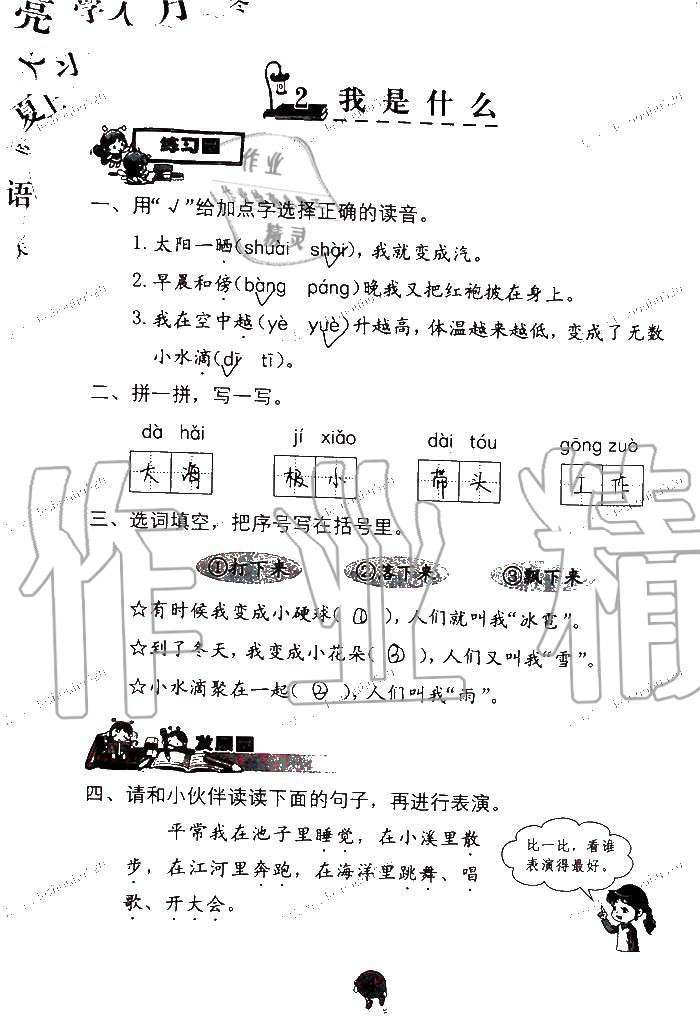 亮 学 人 月 冬
不 习
夏 上
语
2 我是什么
练习园
作业
精灵
一、用“√”给加点字选择正确的读音。
1. 太阳一晒(shuài shài)，我就变成汽。
2. 早晨和傍(bàng páng)晚我又把红袍披在身上。
3. 我在空中越(yè yuè)升越高，体温越来越低，变成了无数
小水滴(dī tī)。
二、拼一拼，写一写。
dà hǎi jí xiǎo dài tóu gōng zuò
大海 极小 带头 工作
三、选词填空，把序号写在括号里。
①打下来 ②落下来 ③飘下来
☆有时候我变成小硬球( ① )，人们就叫我“冰雹”。
☆到了冬天，我变成小花朵( ③ )，人们又叫我“雪”。
☆小水滴聚在一起( ② )，人们叫我“雨”。
发展园
四、请和小伙伴读读下面的句子，再进行表演。
平常我在池子里睡觉，在小溪里散
步，在江河里奔跑，在海洋里跳舞、唱
歌、开大会。
比一比，看谁
表演得最好。
作业精